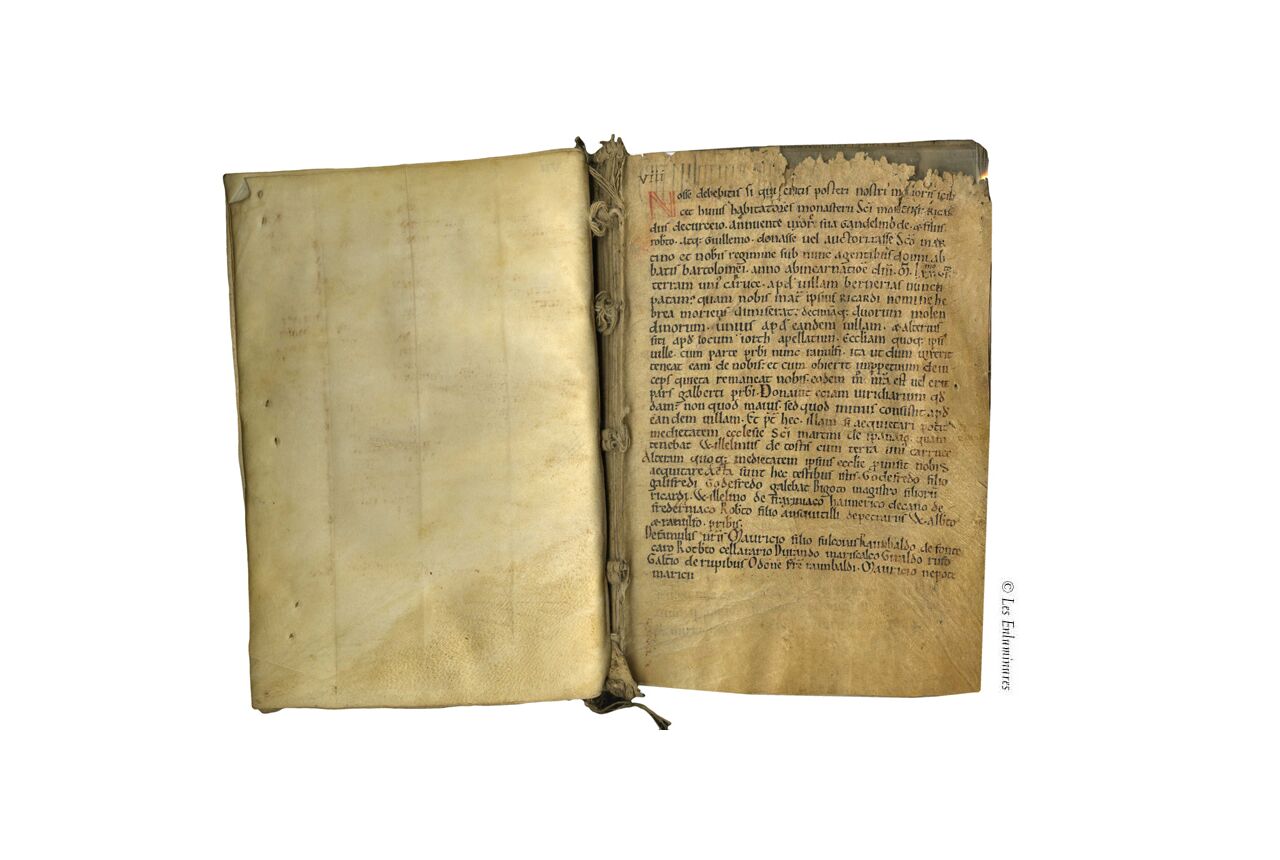 viii
Nosse debebitis si qui eritis posteri nostri maioris scilі
cet huius habitatores monasterii Sci martini. Ricar
dus decurceio. annuente uxore sua Gandelmode. & filiis
robto. atq; Guillelmo. donasse uel auctorizasse Sco mar
tino et nobis regimine sub nunc agentibus domni ab
batis bartolomei. anno abincarnatione dni. M. lxxmo.
terram unius carruce. apd uillam bernerias nuncu
patam. quam nobis mat ipsius Ricardi nomine he
brea moriens dimiserat. decimaq; duorum molen
dinorum. unius apd eandem uillam. & alterius
siti apd locum iorth apellatum. Eccliam quoq; ipsi
uille. cum parte prbi nunc ranulfi. ita ut dum uixerit
teneat eam de nobis. et cum obierit inppetuum dein
ceps quieta remaneat nobis. eodem m est uel erit
pars galberti prbi. Donauit eciam uiridiarum qd
dam. non quod maius. sed quod minus consistit apd
eandem uillam. Et hec. illam si aequietari
medietatem ecclesie Sci martini de quam
tenebat Willelmus de tostis cum terra uni carruce
Alteram quoq; medietatem ipsius ecclie pmisit nobis
aequitare Acta sunt hec testibus istis Godefredo filio
galifredi Godefredo galebat Bigoto magistro filiorum
ricardi. Willelmo de hannerico decano de
frederniaco Robto filio ansquitilli depetrariis W. albto
& ranulfo. prbis.
Defamulis uris Mauricio filio fulconis Raimbaldo de fonte
caro Rotbto cellarario Durando mariscalco Giraldo ruffo
Galtio de rupibus Odone fre raimbaldi. Mauricio nepote
maricii
© Les Enluminures